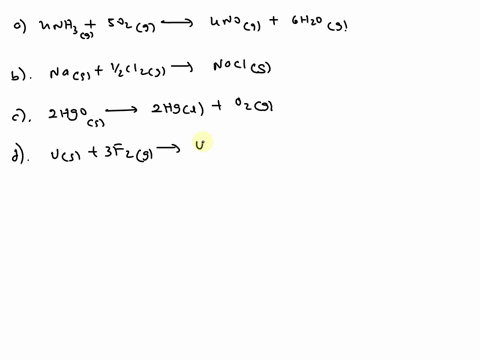 a) 4NH3(g) + 5O2(g) ⟶ 4NO(g) + 6H2O(g)
b). Na(s) + 1/2Cl2(g) ⟶ NaCl(s)
c). 2HgO(s) ⟶ 2Hg(l) + O2(g)
d). U(s) + 3F2(g) ⟶ U